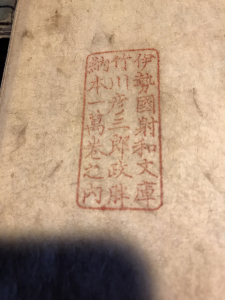 伊勢國射和文庫
竹川彦三郎政胖
納本一萬卷之内